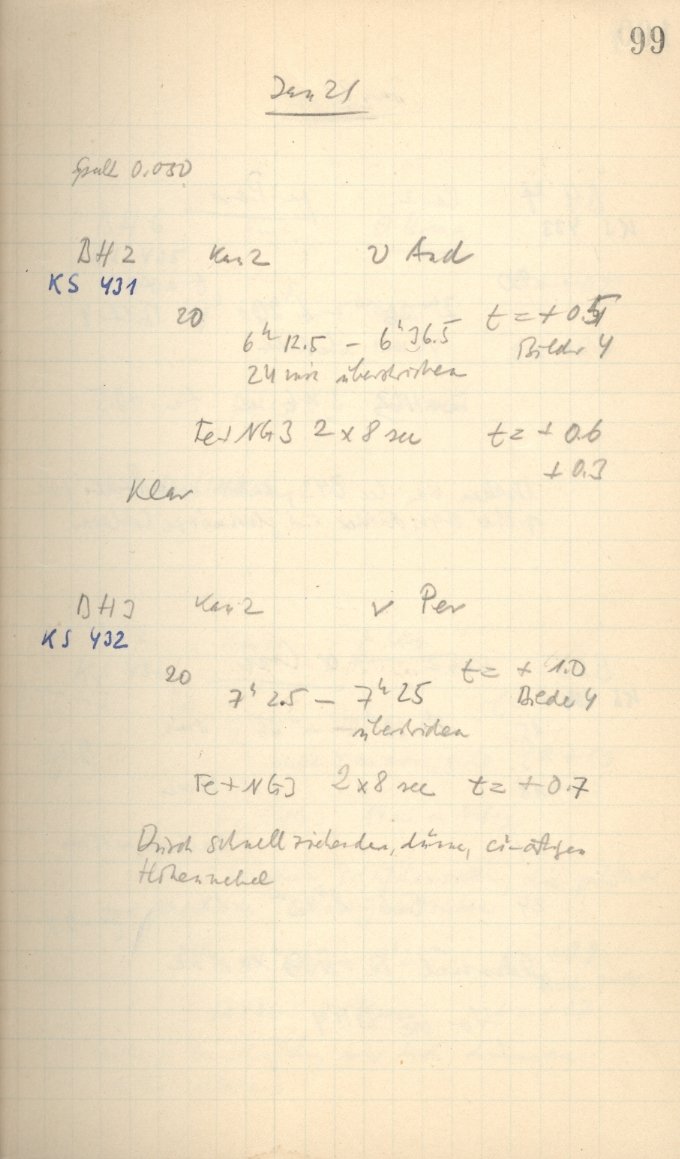 99
Jan 21
Spalt 0.030
BH2 Kas 2 ν And
KS 431
20 t = + 0.5
6ʰ12.5 – 6ʰ36.5 Bilder 4
24 min überstrichen
Fe + NG3 2 × 8 sec t = + 0.6
+ 0.3
Klar
BH3 Kas 2 ν Per
KS 432
20 t = + 1.0
7ʰ 2.5 – 7ʰ 25 Bilder 4
überstrichen
Fe + NG3 2 × 8 sec t = + 0.7
Durch schnell ziehenden, dünnen,
Höhennebel